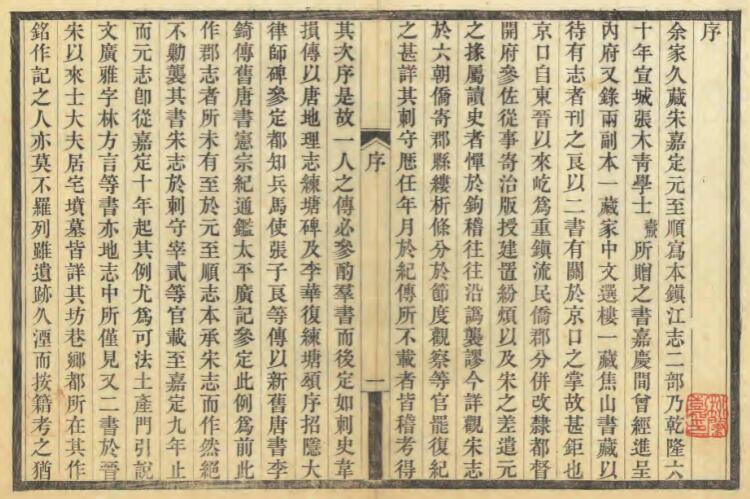 序
余家久藏宋嘉定元至順寫本鎮江志二部乃乾隆六
十年宣城張木青學士燾所贈之書嘉慶間曾經進呈
內府又錄兩副本一藏家中文選樓一藏焦山書藏以
待有志者刊之良以二書有關於京口之掌故甚鉅也
京口自東晉以來屹爲重鎮流民僑郡分併改隸都督
開府參佐從事寄治版授建置紛煩以及宋之差遣元
之掾屬讀史者憚於鉤稽往往沿譌襲謬今詳觀宋志
於六朝僑寄郡縣縷析條分於節度觀察等官罷復紀
之甚詳其刺守歷任年月於紀傳所不載者皆稽考得
序
一
其次序是故一人之傳必參酌羣書而後定如刺史韋
損傳以唐地理志練塘碑及李華復練塘頌序招隱大
律師碑參定都知兵馬使張子良等傳以新舊唐書李
錡傳舊唐書憲宗紀通鑑太平廣記參定此例爲前此
作郡志者所未有至於元至順志本承宋志而作然絕
不勦襲其書宋志於刺守宰貳等官載至嘉定九年止
而元志卽從嘉定十年起其例尤爲可法土產門引說
文廣雅字林方言等書亦地志中所僅見又二書於晉
宋以來士大夫居宅墳墓皆詳其坊巷鄉都所在其作
銘作記之人亦莫不羅列雖遺跡久湮而按籍考之猶